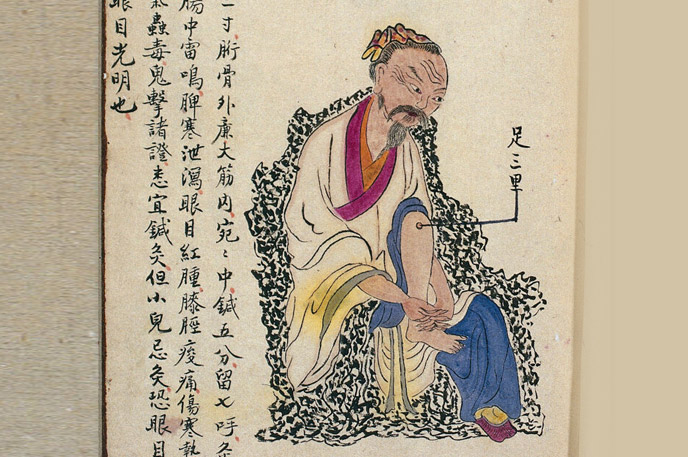 足三里
寸胻骨外廉大筋内宛〻中鍼五分留七呼灸
腸中雷鳴脾寒泄瀉眼目紅腫膝脛痠痛傷寒熱
蟲毒鬼擊諸證悉宜鍼灸但小兒忌灸恐眼目
眼目光明也